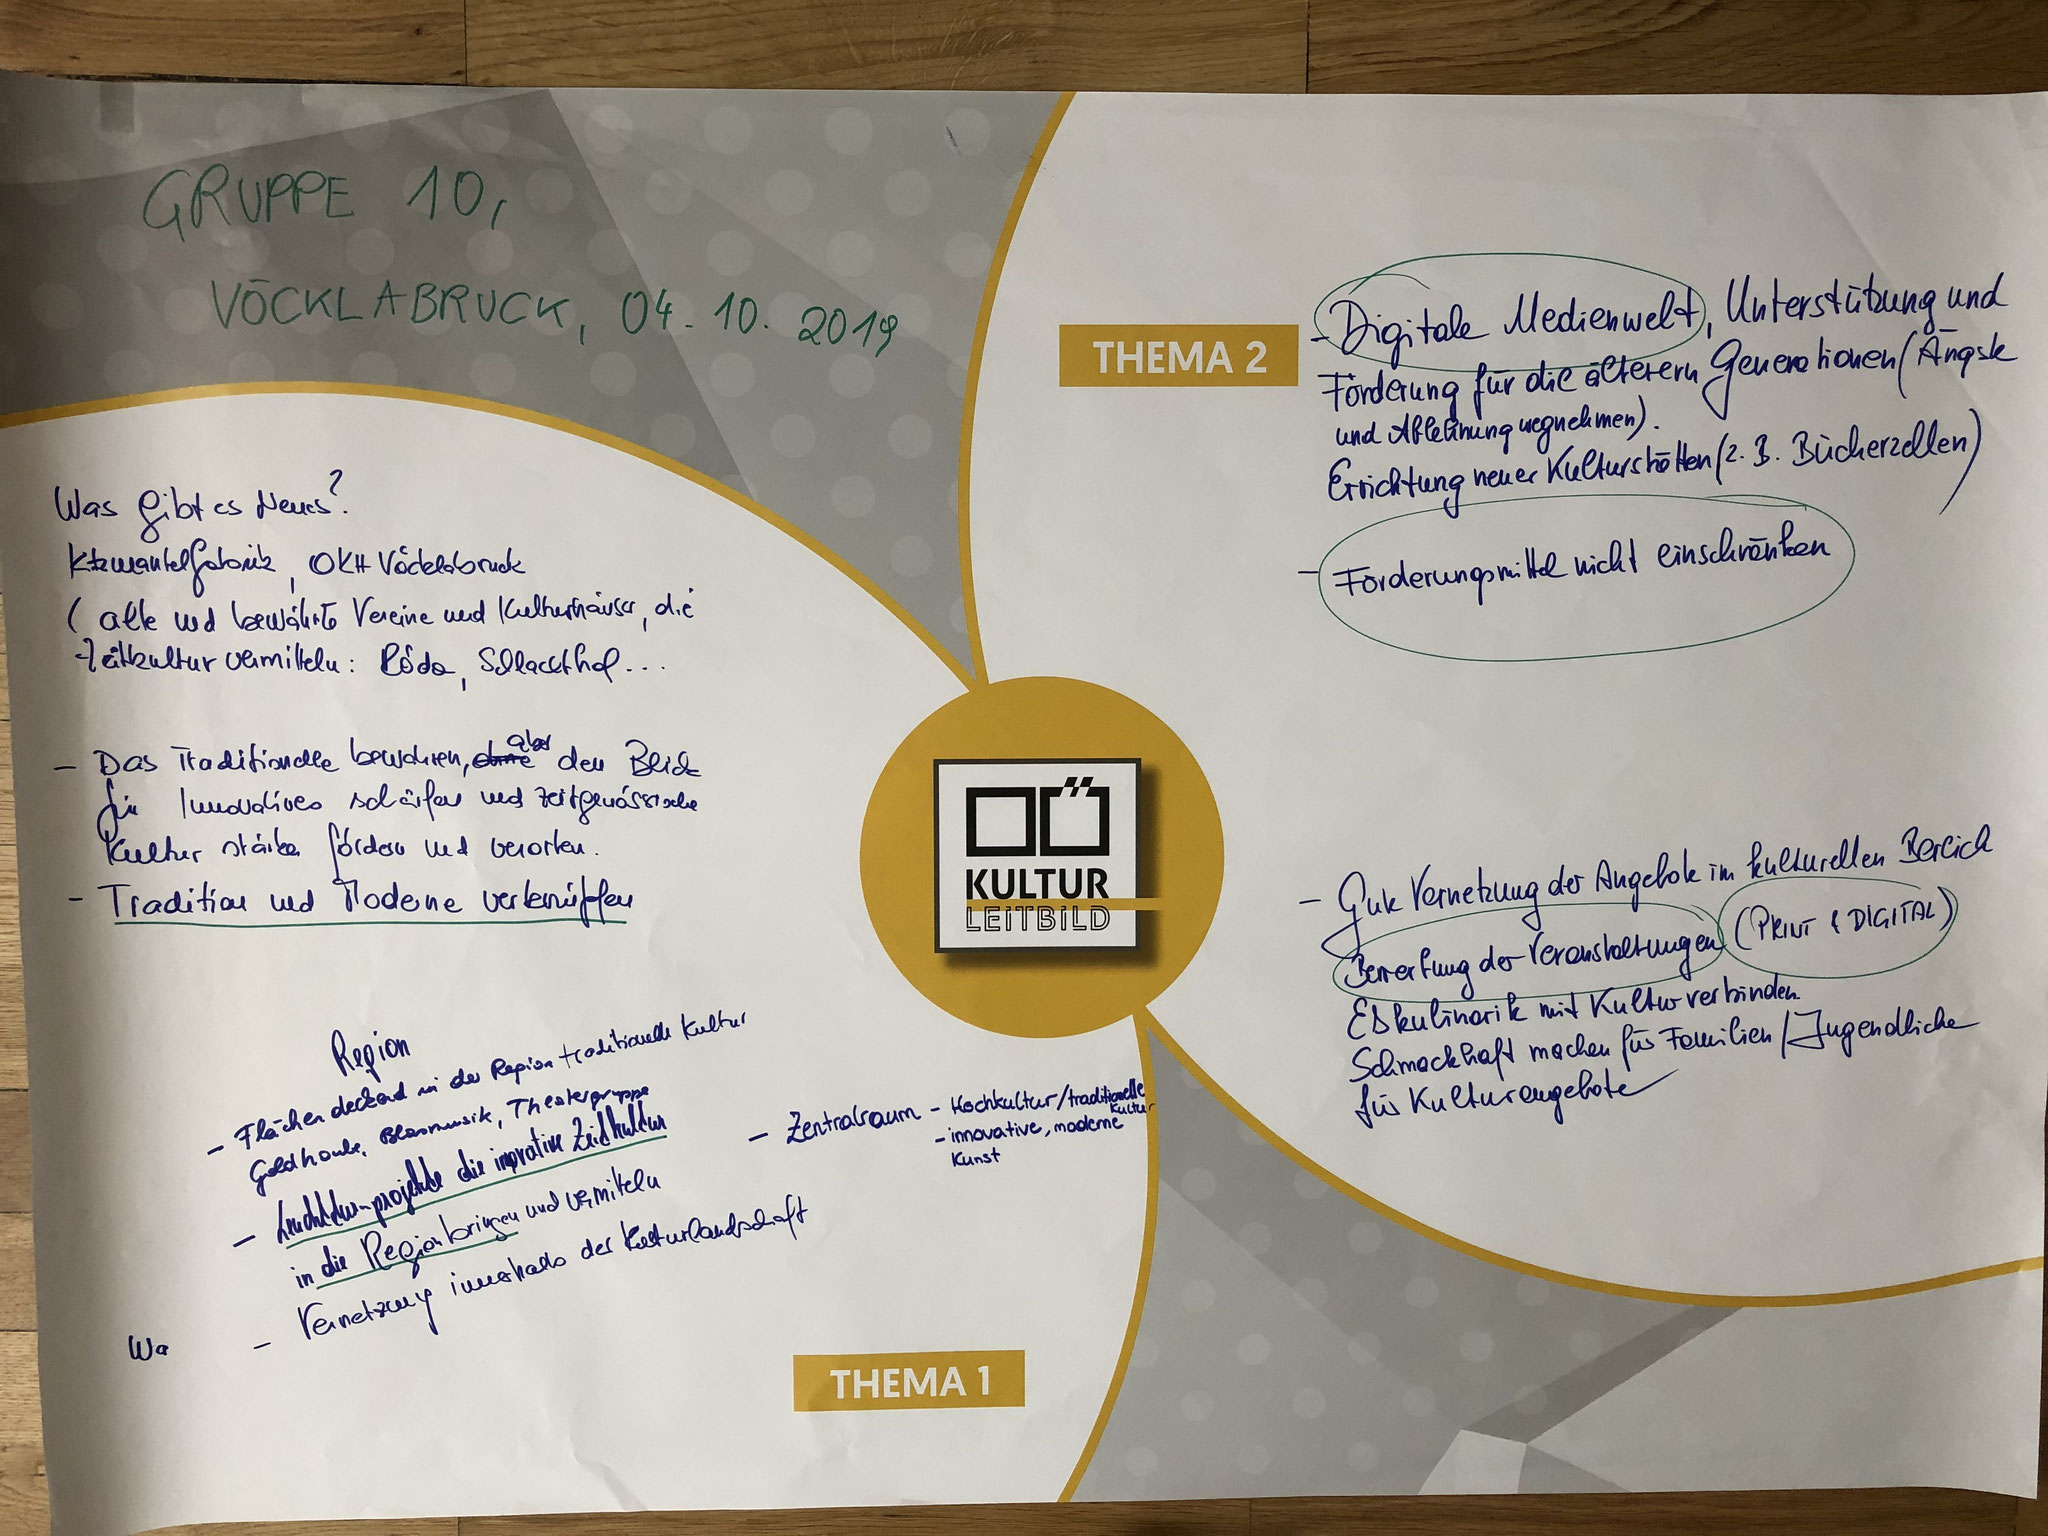 GRUPPE 10,
VÖCKLABRUCK, 04.10.2019
Was gibt es Neues?
Kitzmantelfabrik, OKH Vöcklabruck
(alte und bewährte Vereine und Kulturhäuser, die
Zeitkultur vermitteln: Röda, Schlachthof...
- Das Traditionelle bewahren, ohne aber den Blick
für Innovatives schärfen und zeitgenössische
Kultur stärken fördern und verorten.
- Tradition und Moderne verknüpfen
Region
- Flächendeckend in der Region traditionelle Kultur
Goldhaube, Blasmusik, Theatergruppe
- Leuchtturmprojekte die innovative Zeitkultur
in die Region bringen und vermitteln
- Vernetzung innerhalb der Kulturlandschaft
Wa
- Zentralraum - Hochkultur/traditionelle
Kultur
- innovative, moderne
Kunst
THEMA 1
OÖ
KULTUR
LEITBILD
THEMA 2
- Digitale Medienwelt, Unterstützung und
Förderung für die älteren Generationen (Ängste
und Ablehnung wegnehmen).
Errichtung neuer Kulturstätten (z.B. Bücherzellen)
- Fördermittel nicht einschränken
- Gute Vernetzung der Angebote im kulturellen Bereich
Bewerbung der Veranstaltungen (PRINT & DIGITAL)
Eskulinarik mit Kultur verbinden
Schmackhaft machen für Familien/Jugendliche
für Kulturangebote